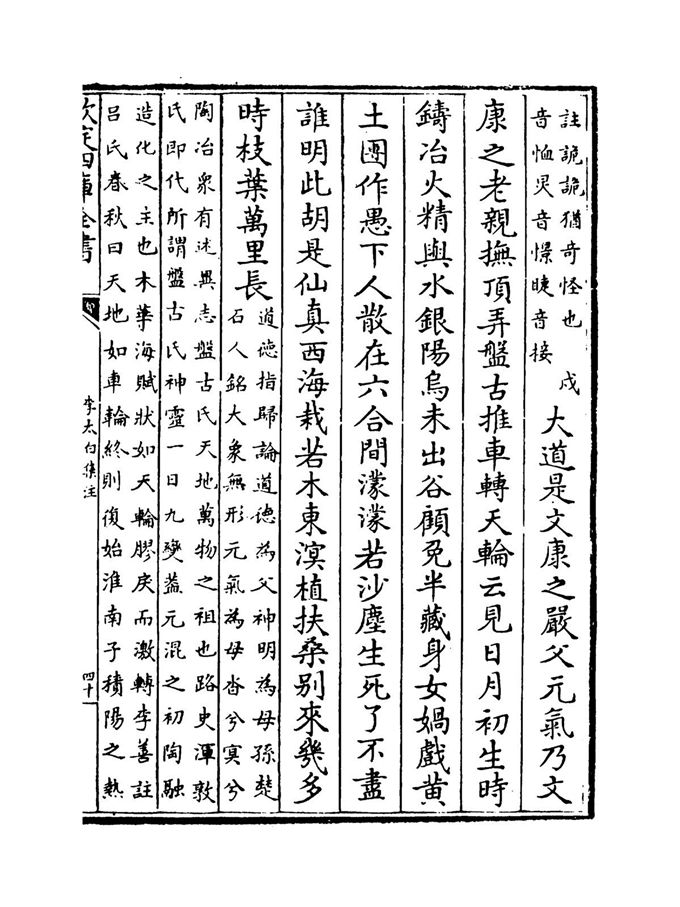 註詭詭猶奇怪也戌
音恤炅音憬睫音接
大道是文康之嚴父元氣乃文
康之老親撫頂弄盤古推車轉天輪云見日月初生時
鑄冶火精與水銀陽烏未出谷顧兔半藏身女媧戲黄
土團作愚下人散在六合間濛濛若沙塵生死了不盡
誰明此胡是仙真西海栽若木東溟植扶桑别來幾多
時枝葉萬里長
道德指歸論道德為父神明為母孫楚
石人銘大象無形元氣為母杳兮冥兮
陶冶衆有述異志盤古氏天地萬物之祖也路史渾敦
氏即代所謂盤古氏神靈一日九變葢元混之初陶融
造化之主也木華海賦狀如天輪膠戾而激轉李善註
吕氏春秋曰天地如車輪終則復始淮南子積陽之熱
欽定四庫全書
李太白集注
四十